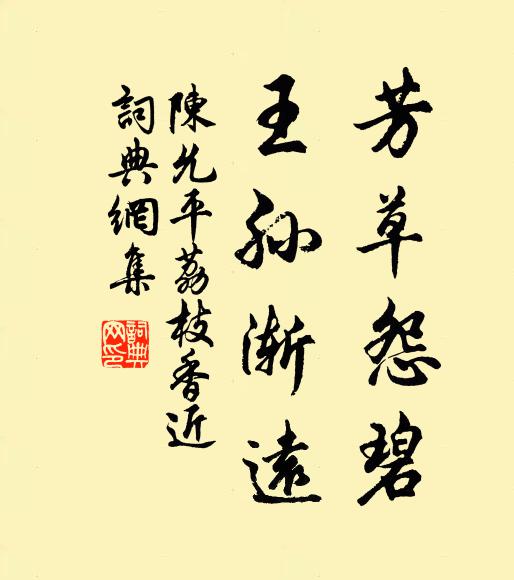 芳草怨碧
王孫漸遠
陳允平荔枝香近
詞典網集
詞典
网印